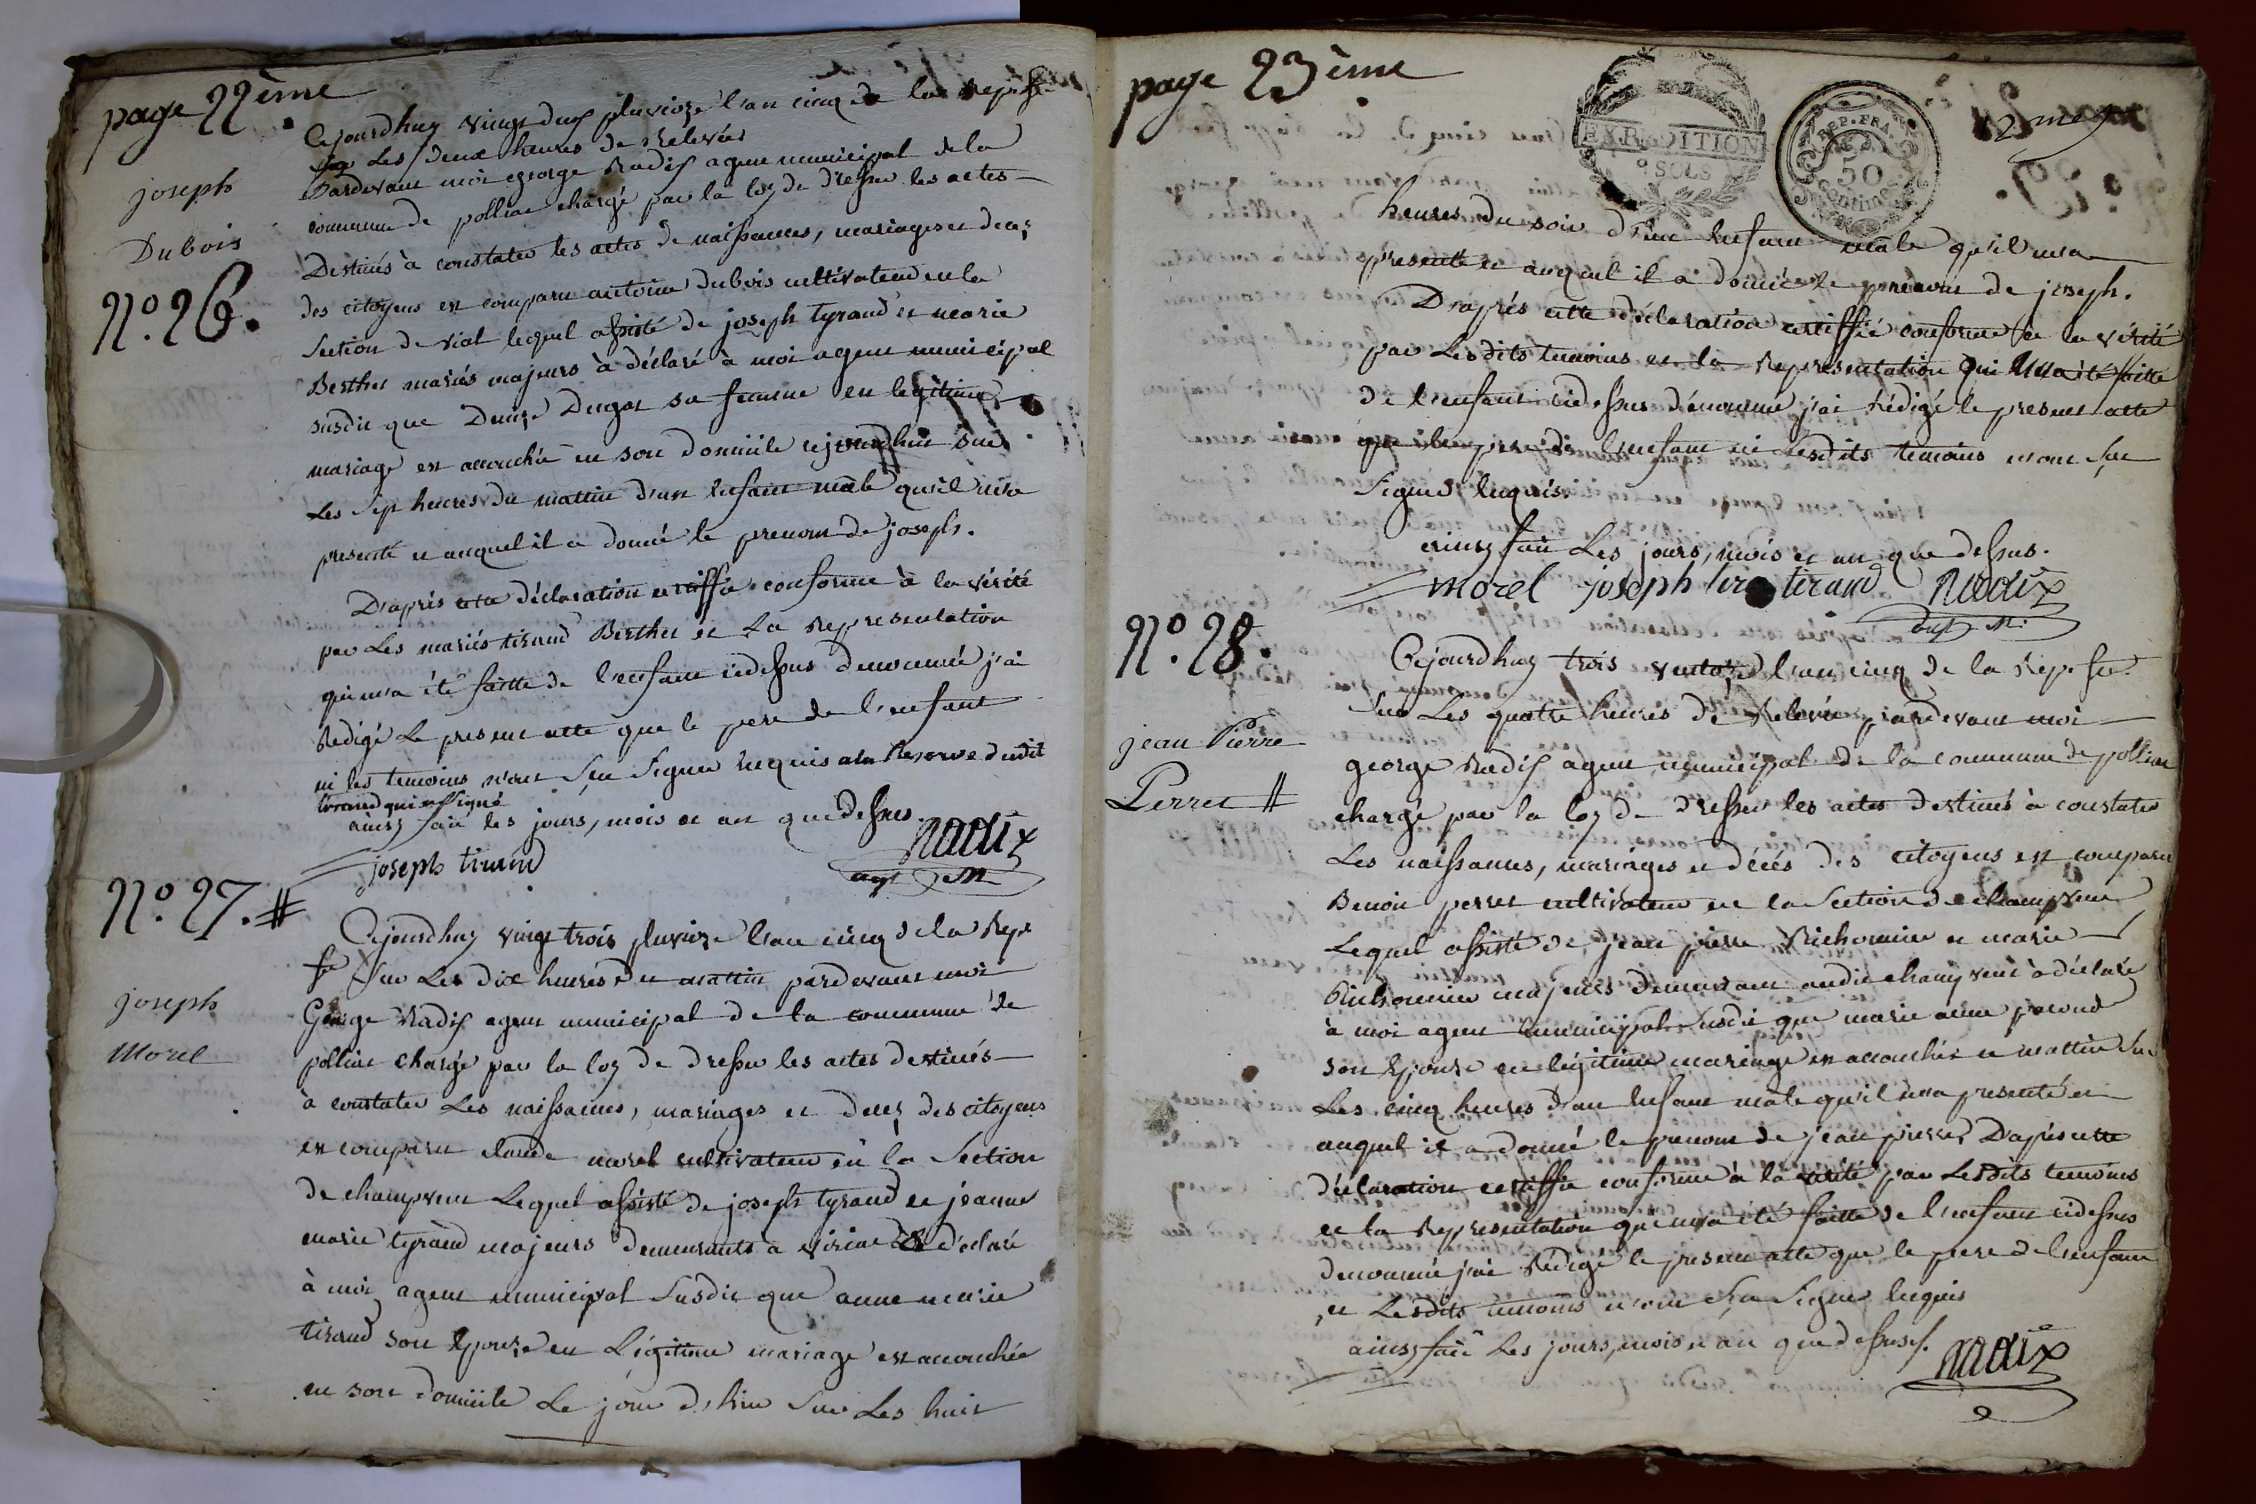 page 22ème
joseph
Dubois
N.º 26.
Cejourdhuy vingt deux pluvioze l'an cinq de la rep. fse
sur Les deux heures de Relevée
Pardevant moi george Radix agent municipal de la
commune de polliat chargé par la loy de dresser les actes
Destinés à constater les actes de naissances, mariages et decez
des citoyens est comparu antoine dubois cultivateur en la
section de viat lequel assisté de joseph tyrand et marie
Berthet mariés majeurs à déclaré à moi agent municipal
susdit que Denize Dugas sa femme en legitime
mariage est accouchée en son domicile cejourdhui sur
Les sept heures du mattin d'un Enfant male qu'il m'a
presenté et auquel il a donné le prenom de joseph.
D'après cette déclaration certiffiée conforme à la vérité
par Les mariés tirand Berthet et La Representation
qui m'a été faitte de l'enfant cidessus denommé j'ai
Redigé Le present acte que le pere de l'enfant
ni les temoins n'ont sçu signer Enquis a la Reserve dudit
tirand qui a signé
ainsy fait les jours, mois et an que dessus.
joseph tirand Radix
agt M
N.º 27. #
joseph
Morel
Cejourdhuy vingt trois pluvioze l'an cinq de la Rep.
fse sur Les dix heures du mattin pardevant moi
George Radix agent municipal de la commune de
polliat chargé par la loy de dresser les actes destinés
à constater Les naissances, mariages et decez des citoyens
est comparu claude morel cultivateur en la Section
de champvent Lequel assisté de joseph tyrand et jeanne
marie tyrand majeurs demeurants à viriat à déclaré
à moi agent municipal susdit que anne marie
tirand son Epouze en Légitime mariage est accouchée
en son domicile Le jour d'hier sur Les huit
page 23ème
2me
EXPEDITION
9 SOLS
REP. FRA.
50
Centimes
heures du soir d'un Enfant male qu'il m'a
presenté et auquel il a donné le prenom de joseph.
D'après cette déclaration certiffiée conforme à la vérité
par Lesdits temoins et la Representation qui m'a été faitte
de l'enfant cidessus dénommé j'ai rédigé le present acte
que le pere de l'enfant ni Lesdits temoins n'ont sçu
signer Enquis.
ainsy fait Les jours, mois et an que dessus.
morel joseph tirand Radix
agt M.
N.º 28.
jean Pierre
Perret #
Cejourdhuy trois ventoze l'an cinq de la Rep. fse
sur Les quatre heures de Relevée pardevant moi
george Radix agent municipal de la commune de polliat
chargé par la loy de dresser les actes destinés à constater
Les naissances, mariages et décès des citoyens est comparu
Benoit perret cultivateur en la Section de champvent
Lequel assisté de jean pierre Richonnier et marie
Richonnier majeurs demeurant audit champvent à déclaré
à moi agent municipal susdit que marie anne
son Epouze en légitime mariage est accouchée ce mattin sur
Les cinq heures d'un Enfant male qu'il m'a presenté et
auquel il a donné le prenom de jean pierre, D'après cette
déclaration certiffiée conforme à la vérité par Lesdits temoins
et la Representation qui m'a été faitte de l'enfant cidessus
denommé j'ai Rédigé le present acte que le pere de l'enfant
et Lesdits temoins n'ont sçu signer Enquis
ainsy fait Les jours, mois et an que dessus.
Radix